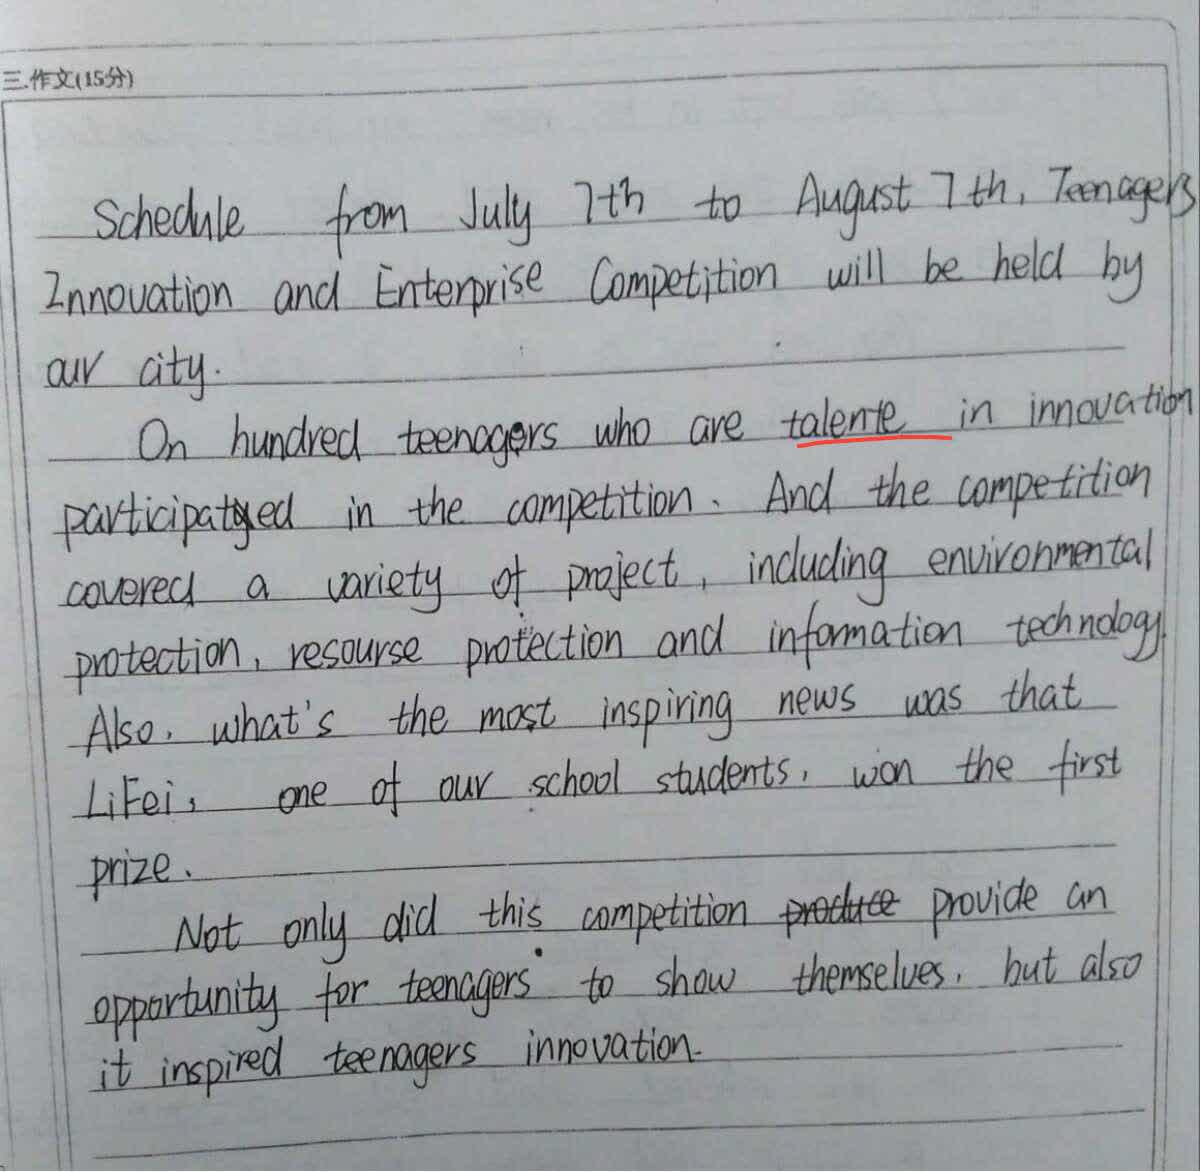 三.作文(15分)
Schedule from July 7th to August 7th, Teenagers
Innovation and Enterprise Competition will be held by
our city.
On hundred teenagers who are talente in innovation
participated in the competition. And the competition
covered a variety of project, including environmental
protection, resourse protection and information technology.
Also, what's the most inspiring news was that
LiFei, one of our school students, won the first
prize.
Not only did this competition produce provide an
opportunity for teenagers to show themselves, but also
it inspired teenagers innovation.